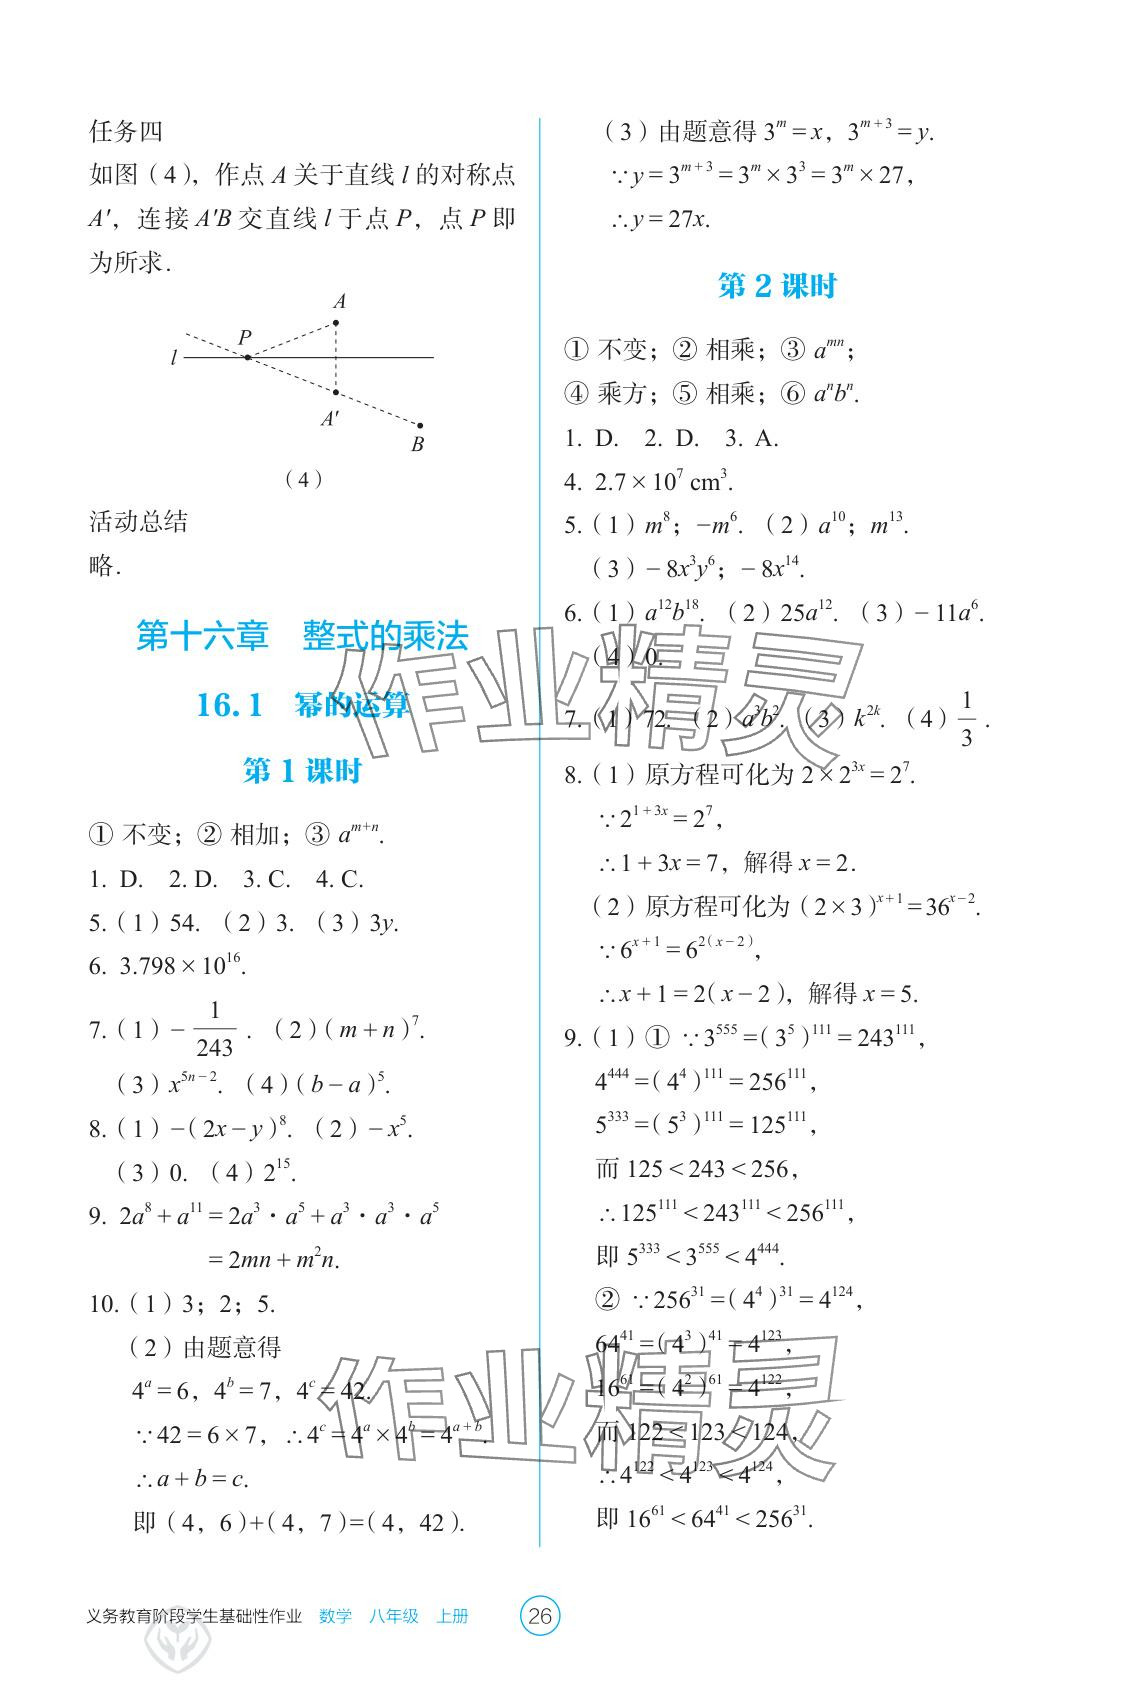 任务四
如图（4），作点 A 关于直线 l 的对称点
A′，连接 A′B 交直线 l 于点 P，点 P 即
为所求.
A
P
l
A′
B
（4）
活动总结
略.
第十六章　整式的乘法
16.1　幂的运算
第 1 课时
① 不变；② 相加；③ a^{m+n}.
1. D.　2. D.　3. C.　4. C.
5.（1）54.（2）3.（3）3y.
6. 3.798×10^{16}.
7.（1）−\frac{1}{243}.（2）(m+n)^7.
（3）x^{5n−2}.（4）(b−a)^5.
8.（1）−(2x−y)^8.（2）−x^5.
（3）0.（4）2^{15}.
9. 2a^8+a^{11}=2a^3·a^5+a^3·a^3·a^5
=2mn+m^2n.
10.（1）3；2；5.
（2）由题意得
4^a=6，4^b=7，4^c=42.
∵42=6×7，∴4^c=4^a×4^b=4^{a+b}.
∴a+b=c.
即（4，6）+（4，7）=（4，42）.
（3）由题意得 3^m=x，3^{m+3}=y.
∵y=3^{m+3}=3^m×3^3=3^m×27，
∴y=27x.
第 2 课时
① 不变；② 相乘；③ a^{mn}；
④ 乘方；⑤ 相乘；⑥ a^nb^n.
1. D.　2. D.　3. A.
4. 2.7×10^7 cm^3.
5.（1）m^8；−m^6.（2）a^{10}；m^{13}.
（3）−8x^3y^6；−8x^{14}.
6.（1）a^{12}b^{18}.（2）25a^{12}.（3）−11a^6.
（4）0.
7.（1）72.（2）a^3b^2.（3）k^{2k}.（4）\frac{1}{3}.
8.（1）原方程可化为 2×2^{3x}=2^7.
∵2^{1+3x}=2^7，
∴1+3x=7，解得 x=2.
（2）原方程可化为（2×3）^{x+1}=36^{x−2}.
∵6^{x+1}=6^{2(x−2)}，
∴x+1=2(x−2)，解得 x=5.
9.（1）① ∵3^{555}=(3^5)^{111}=243^{111}，
4^{444}=(4^4)^{111}=256^{111}，
5^{333}=(5^3)^{111}=125^{111}，
而 125<243<256，
∴125^{111}<243^{111}<256^{111}，
即 5^{333}<3^{555}<4^{444}.
② ∵256^{31}=(4^4)^{31}=4^{124}，
64^{41}=(4^3)^{41}=4^{123}，
16^{61}=(4^2)^{61}=4^{122}，
而 122<123<124，
∴4^{122}<4^{123}<4^{124}，
即 16^{61}<64^{41}<256^{31}.
作业精灵
作业精灵
义务教育阶段学生基础性作业　数学　八年级　上册　26